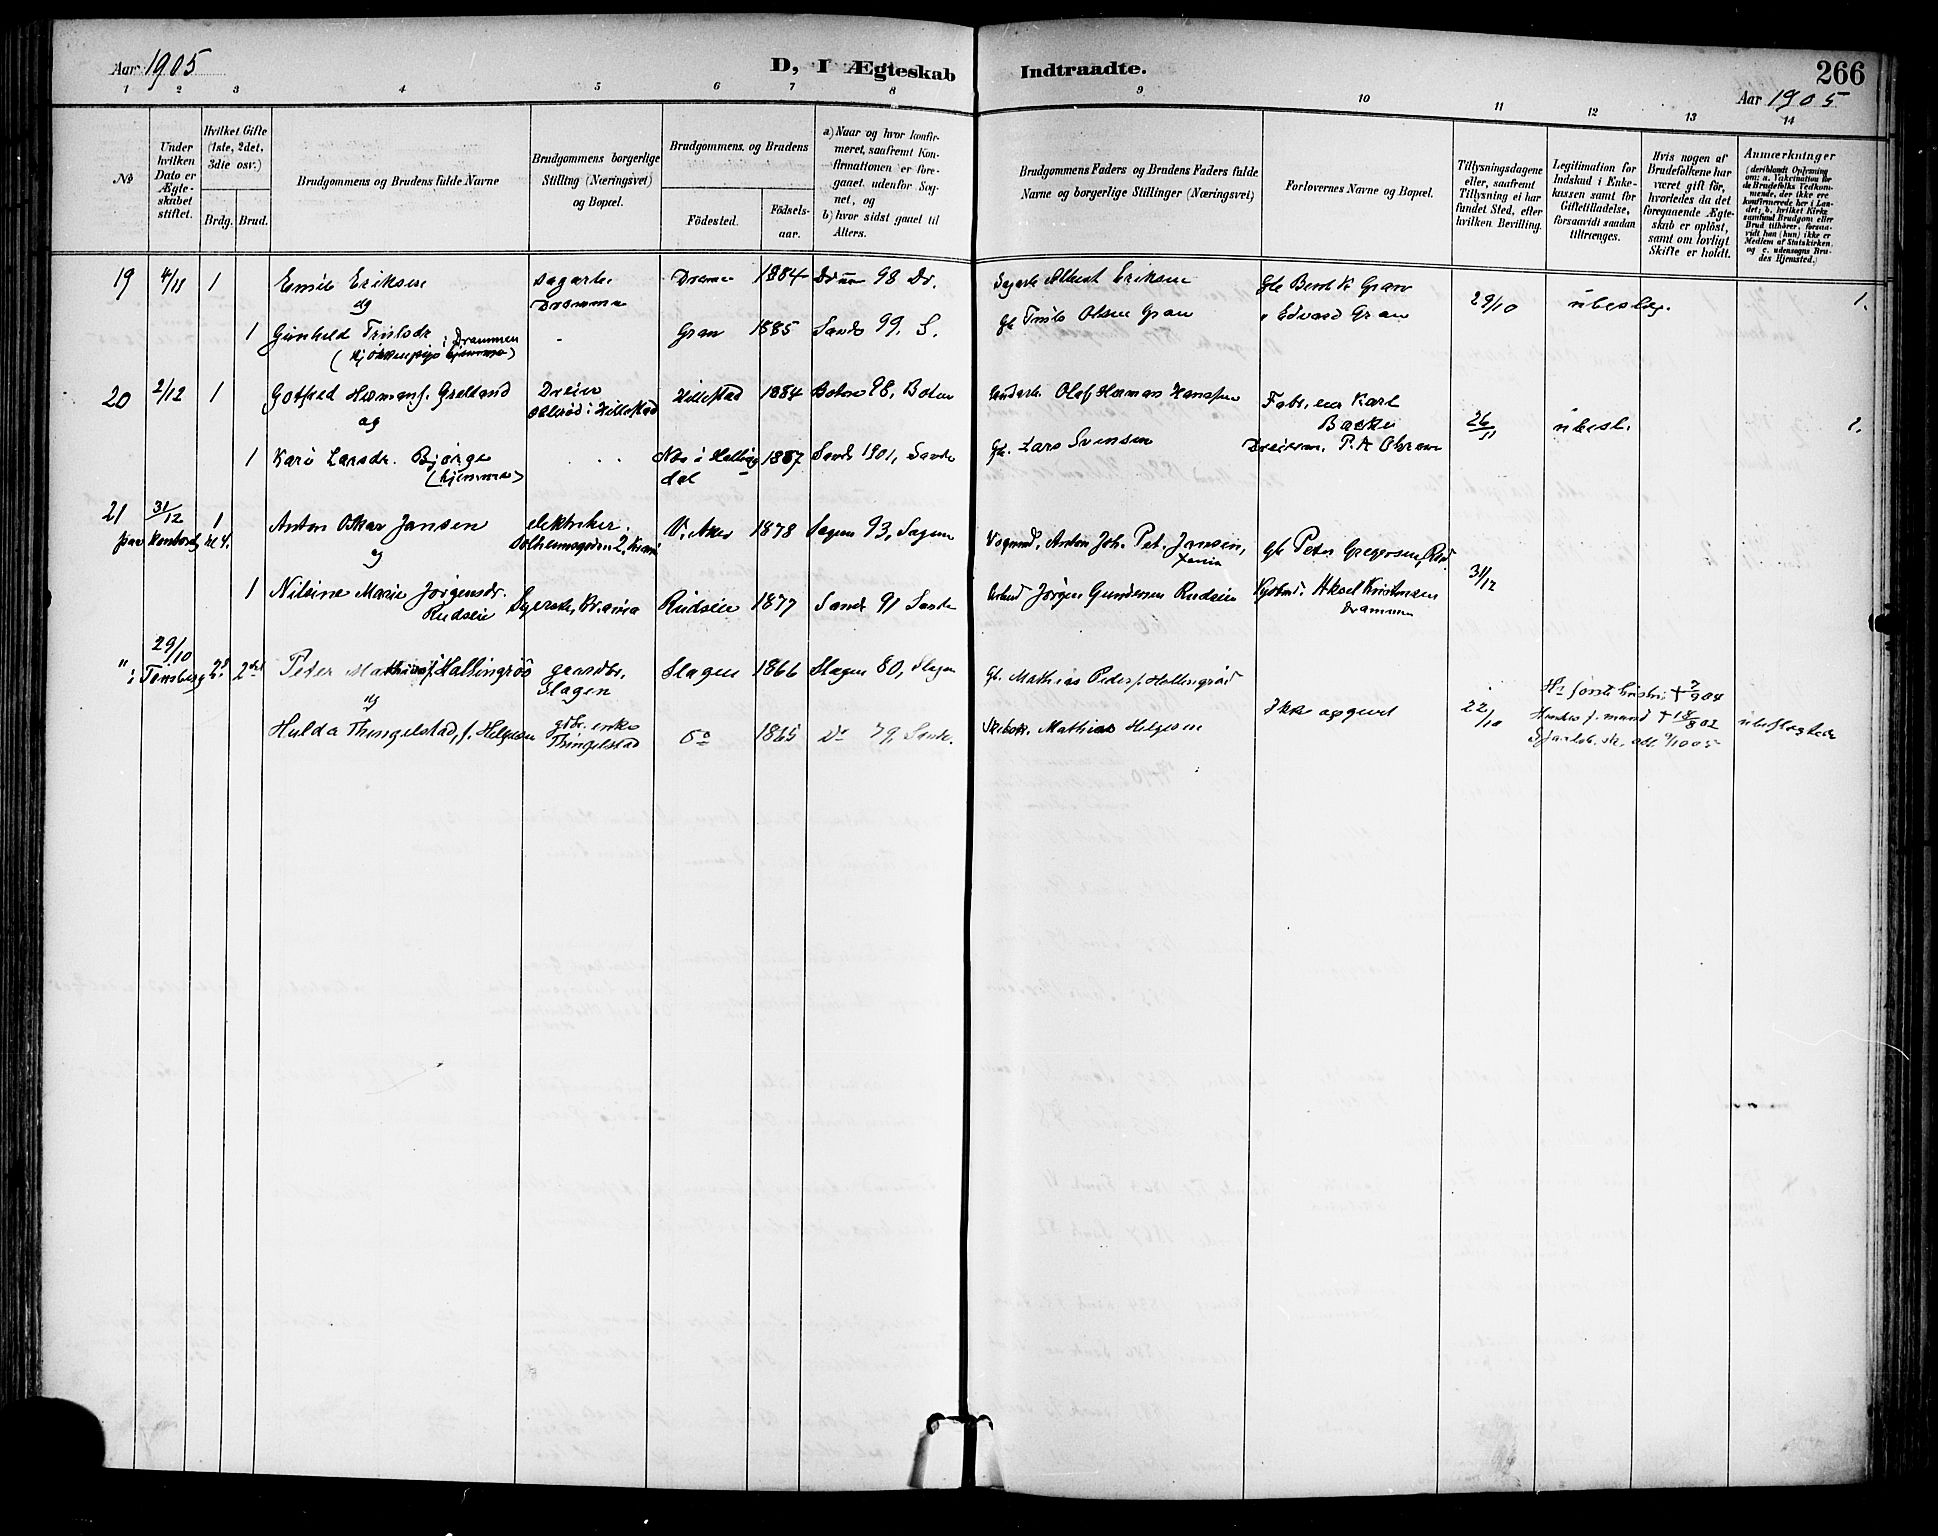 Aar 1905
D, I Ægteskab Indtraadte.
266
Aar 1905
1 2 3 4 5 6 7 8 9 10 11 12 13 14
No
Under hvilken Dato er Ægteskabet stiftet.
Hvilket Gifte (1ste, 2det, 3die osv.)
Brdg. Brud.
Brudgommens og Brudens fulde Navne
Brudgommens borgerlige Stilling (Næringsvei) og Bopæl.
Brudgommens og Brudens
Födested.
Födselsaar.
a) Naar og hvor konfirmeret, saafremt Konfirmationen er foregaaet udenfor Sognet, og
b) hvor sidst gaaet til Alters.
Brudgommens Faders og Brudens Faders fulde Navne og borgerlige Stillinger (Næringsvei)
Forlovernes Navne og Bopæl.
Tillysningsdagene eller, saafremt Tillysning ei har fundet Sted, efter hvilken Bevilling.
Legitimation for Indskud i Enkekassen samt for Giftetilladelse, forsaavidt saadan tiltrænges.
Hvis nogen af Brudefolkene har været gift för, hvorledes da det foregaaende Ægteskab er oplöst, samt om lovligt Skifte er holdt.
Anmærkninger
(deriblandt Oplysning om: a. Vakcination for de Brudefolks Vedkommende, der ikke ere konfirmerede her i Landet; b. hvilket Kirkesamfund Brudgom eller Brud tilhører, forsaavidt han (hun) ikke er Medlem af Statskirken, og c. udensogns Brudes Hjemsted.)
19 4/11 1 Emil Eriksen Sagarb. 1884 98 Dr. Sagarb. Albert Eriksen Gb. Bernt K Gran 29/10 ubesleg. 1.
og
1 Gunhild Trulsdr. i Drammen - Gran 1885 Sande 99. S. Gb. Truls Olsen Gran " Edvard Gran
20 2/12 1 Gotfred Hermansf. Grelland Dreier Hillestad 1884 Botne 98, Botne Olaf Herman Hanssen Fabr.eier Karl Backe 26/11 ubesl. 1.
og i Hillestad
1 Kari Larsdr. Bjørge Næs i Hallingdal 1887 Sande 1901, Sande Gb. Lars Svensen P. A
(hjemme)
21 31/12 1 Anton Oskar Jansen elektriker V. Aker 1878 Sagene 93, Sagene Vognmd. Anton Joh. Pet. Jansen, Gb. Peter Gregersen, 31/12
og
1 Nilsine Marie Jørgensdr. Rudseie Syerske, Kr.ania Rudseie 1877 Sande 91 Sande Jørgen Gundersen Rudseie Aksel Kristensen Drammen
" 29/10 i Tønsberg 2d 2det Peder Mathiasf. Hallingrød gaardbr. Slagen Slagen 1866 Slagen 80, Slagen Gb. Mathias Peders. Hallingrød Ikke opgivet 22/10
og
Hulda Thingelstad, f. Helgesen gdbr. enke Thingelstad Do 1865 Do 79, Sande. Skibsk. Mathias Helgesen ubeslegtede